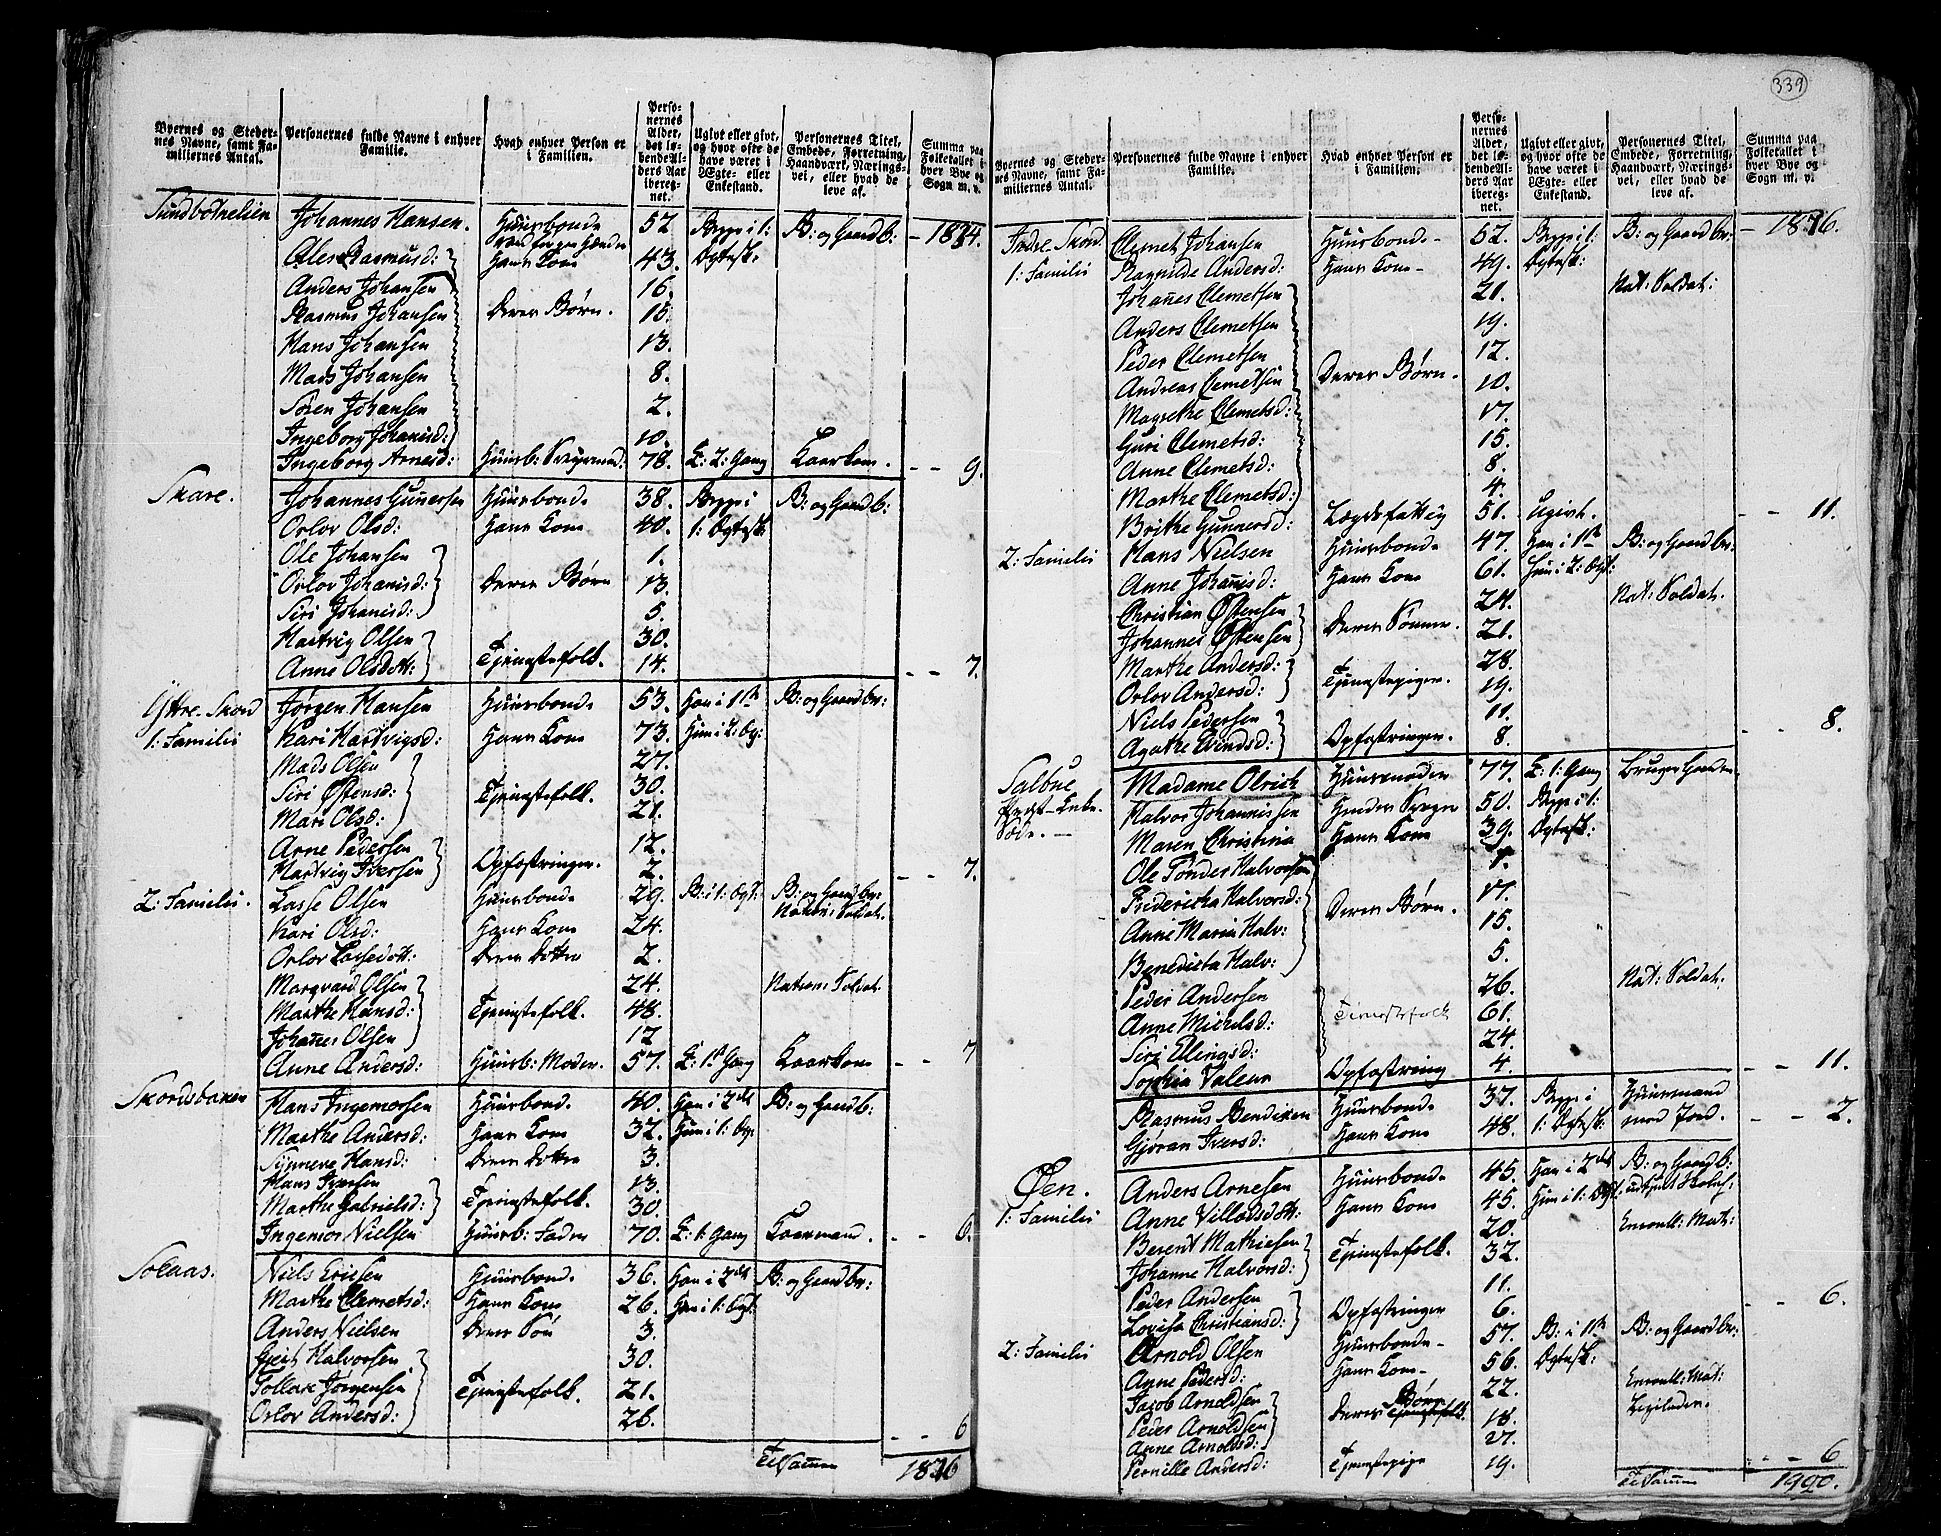 339
Byernes og Stedernes Navne, samt Familiernes Antal. | Personernes fulde Navne i enhver Familie. | Hvad enhver Person er i Familien. | Personernes Alder, det løbende Alders Aar iberegnet. | Ugivt eller givt, og hvor ofte de have været i Ægte- eller Enkestand. | Personernes Titel, Embede, Forretning, Haandværk, Næringsvei, eller hvad de leve af. | Summa paa Folketallet i hver Bye og Sogn m. v.
Sundbotnelien | Johannes Hansen. | Huusbonde | 52 | Begge i 1: | B: og Gaardb: | 1824.
Rasmusd: | Hans Kone | 43. | Ægtesk:
Anders Johansen | 16.
Rasmus Johansen | Deres Børn. | 15.
Hans Johansen | 13.
Mads Johansen | 8.
Søren Johansen | 2.
Ingeborg Johanisd: | 10.
Ingeborg Arnesd: | Huusb: | 78. | E: 2: Gang | Kaarkone. | 9.
Skare. | Johannes Gunnersen | Huusbonde | 38. | Begge i | B: og Gaardb:
Orlov Olsd: | Hans Kone | 40. | 1: Ægtesk:
Ole Johansen | 1.
Orlov Johanisd: | Deres Børn | 13.
Siri Johanisd: | 5.
Hartvig Olsen | 30.
Anne Olsdott: | Tjenestefolk. | 14. | 7.
Yttre Skord | Jørgen Hansen | Huusbonde | 53. | Han i 1ste | B: og Gaardbr:
1: Familie | Kari Hartvigsd: | Hans Kone | 73. | Hun i 2: Ægt:
Mads Olsen | 27.
Siri Østensd: | Tjenestefolk. | 30.
Mari Olsd: | 21.
Arne Pedersen | 12.
Hartvig Iversen | Opfostringer. | 2. | 7.
2: Familie. | Lasse Olsen | Huusbonde | 29. | B: i 1: Ægt: | B: og Gaardbr: Soldat.
Kari Olsd: | Hans Kone | 24.
Orlov Lassedott: | Deres Dotter | 2.
Marqvard Olsen | 24. | Soldat.
Marthe Hansd: | Tjenestefolk. | 48.
Johannes Olsen | 12
Anne Andersd: | Huusb: Moder. | 57. | E: 1ste Gang | Kaarkone | 7
Skordsbaken | Hans Ingemorsen | Huusbond. | 40. | Han i 2det | B: og Gaardb:
Marthe Andersd: | Hans Kone | 32. | Hun i 1: Ægt:
Synneve Hansd: | Deres Dotter | 3.
Hans Iversen | 13.
Marthe Gabrielsd: | Tjenestefolk. | 30.
Ingemor Nielsen | Huusb: Fader | 70. | E: 1: Gang | Kaarmand. | 6.
Solaas. | Niels Ericsen | Huusbond. | 36. | Han i 2det | B: og Gaardbr:
Marthe Clemetsd: | Hans Kone | 26. | Hun i 1: Ægt:
Anders Nielsen | Deres Søn | 3.
Halvorsen | 30.
Jørgensen | Tjenestefolk. | 21.
Orlov Andersd: | 26. | 6
1876
Byernes og Stedernes Navne, samt Familiernes Antal. | Personernes fulde Navne i enhver Familie. | Hvad enhver Person er i Familien. | Personernes Alder, det løbende Alders Aar iberegnet. | Ugivt eller givt, og hvor ofte de have været i Ægte- eller Enkestand. | Personernes Titel, Embede, Forretning, Haandværk, Næringsvei, eller hvad de leve af. | Summa paa Folketallet i hver Bye og Sogn m. v.
Indre Skord. | Clemet Johansen | Huusbonde | 52. | Begge i 1: | B: og Gaardbr: | 1876.
1: Familie | Ragnilde Andersd: | Hans Kone | 49. | Ægtesk:
Johannes Clemetsen | 21. | Nat: Soldat:
Anders Clemetsen | 19.
Peder Clemetsen | 12.
Andreas Clemetsen | Deres Børn. | 10.
Magrethe Clemetsd: | 17.
Guri Clemetsd: | 15.
Anne Clemetsd: | 8.
Marthe Clemetsd: | 4.
Brithe Gunnersd: | Lægdsfattig | 51. | Ugivt. | 11.
2: Familie | Hans Nielsen | Huusbonde | 47. | Han i 1ste | B: og Gaardbr:
Anne Johanisd: | Hans Kone | 61. | Hun i 2: Ægt:
Christian Østensen | 24. | Nat: Soldat.
Johannes Østensen | Deres Sønner. | 21.
Marthe Andersd: | 28.
Orlov Andersd: | Tjenestepiger. | 19.
Niels Pedersen | 11.
Agathe Evindsd: | Opfostringer. | 8. | 8.
Salbue | Madame Olrich | Huusmoder | 77. | E: 1: Gang | Bruger Gaarden
Præst-Enke- | Halvor Johannissen | Hendes | 50. | Begge i 1:
Sæde. | Maren Christina | Hans Kone | 39. | Ægtesk:
Ole Tønder Halvorsen | 1.
Fredericha Halvorsd: | Deres Børn. | 17.
Anne Maria Halv: | 15.
Benedicta Halv: | 5.
Peder Andersen | 26. | Nat: Soldat.
Anne Michelsd: | Tienestefolk | 61.
Siri Ellingsd: | 24.
Sophia | Opfostring | 4. | 11.
Rasmus Bendixen | Huusbond. | 37. | Begge i | Huusmand
Gjøran Iversd: | Hans Kone | 48. | 1: Ægtesk: | med Jord. | 2.
Øen. | Anders Arnesen | Huusbonde | 45. | Han i 2det | B: og Gaardb:
1: Familie | Anne Villadsdott: | Hans Kone | 45. | Hun i 1: Ægt:
Berent Mathiesen | 20. | Enroll: Mat:
Johanne Halvorsd: | Tjenestefolk. | 32.
Peder Andersen | 11.
Lovisa Christiansd: | Opfostringer | 6. | 6.
2: Familie | Arnold Olsen | Huusbonde | 57. | B: i 1ste | B: og Gaardbr:
Anne Pedersd: | Hans Kone | 56. | Ægtesk:
Jacob Arnoldsen | Børn | 22. | Enroll: Mat:
Peder Arnoldsen | Deres Tjenestefolk. | 18.
Anne Arnoldsd: | 21.
Pernille Andersd: | Tjenestepige | 19. | 6
1920.